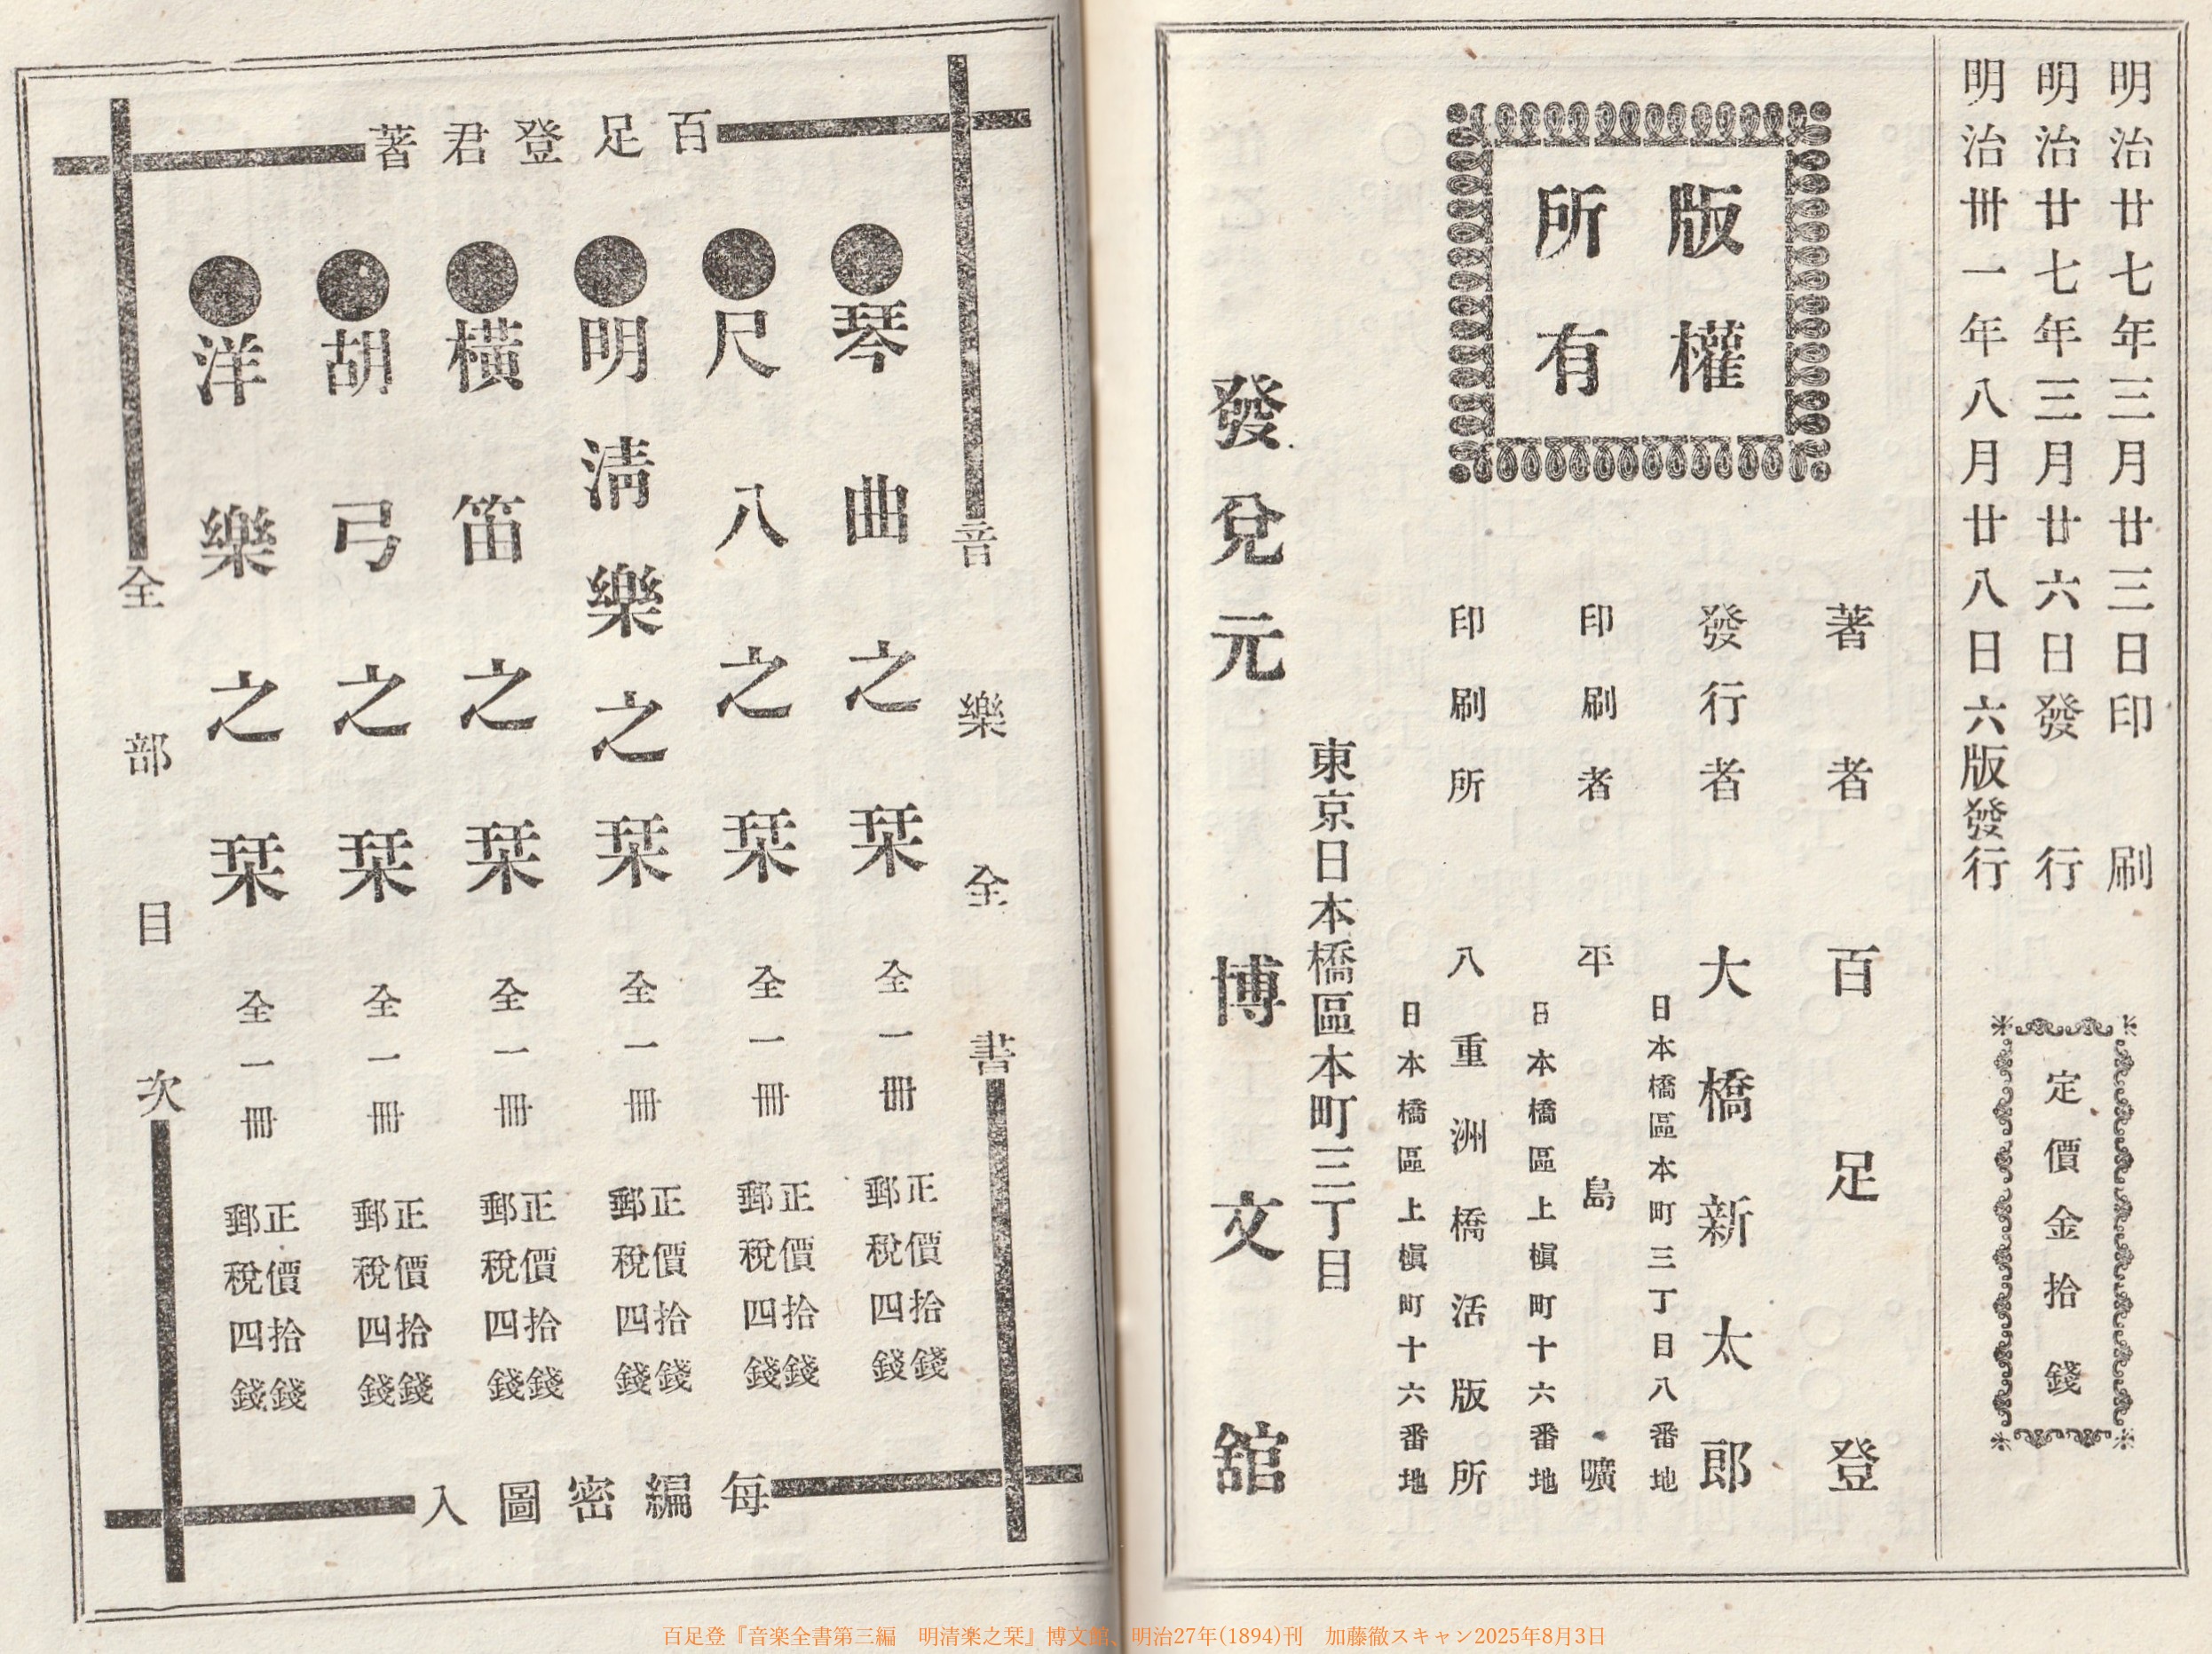 明治廿七年三月廿三日印刷
明治廿七年三月廿六日發行
明治卅一年八月廿八日六版發行
定價金拾錢
版權
所有
著者 百足登
發行者 大橋新太郎
日本橋區本町三丁目八番地
印刷者 平島曠
日本橋區上槇町十六番地
印刷所 八重洲橋活版所
日本橋區上槇町十六番地
東京日本橋區本町三丁目
發兌元 博文舘
百足登君著
音樂全書
●琴曲之栞 全一冊 正價拾錢
郵稅四錢
●尺八之栞 全一冊 正價拾錢
郵稅四錢
●明淸樂之栞 全一冊 正價拾錢
郵稅四錢
●橫笛之栞 全一冊 正價拾錢
郵稅四錢
●胡弓之栞 全一冊 正價拾錢
郵稅四錢
●洋樂之栞 全一冊 正價拾錢
郵稅四錢
全部目次
每編密圖入
百足登『音楽全書第三編　明清楽之栞』博文館、明治27年(1894)刊　加藤徹スキャン2025年8月3日